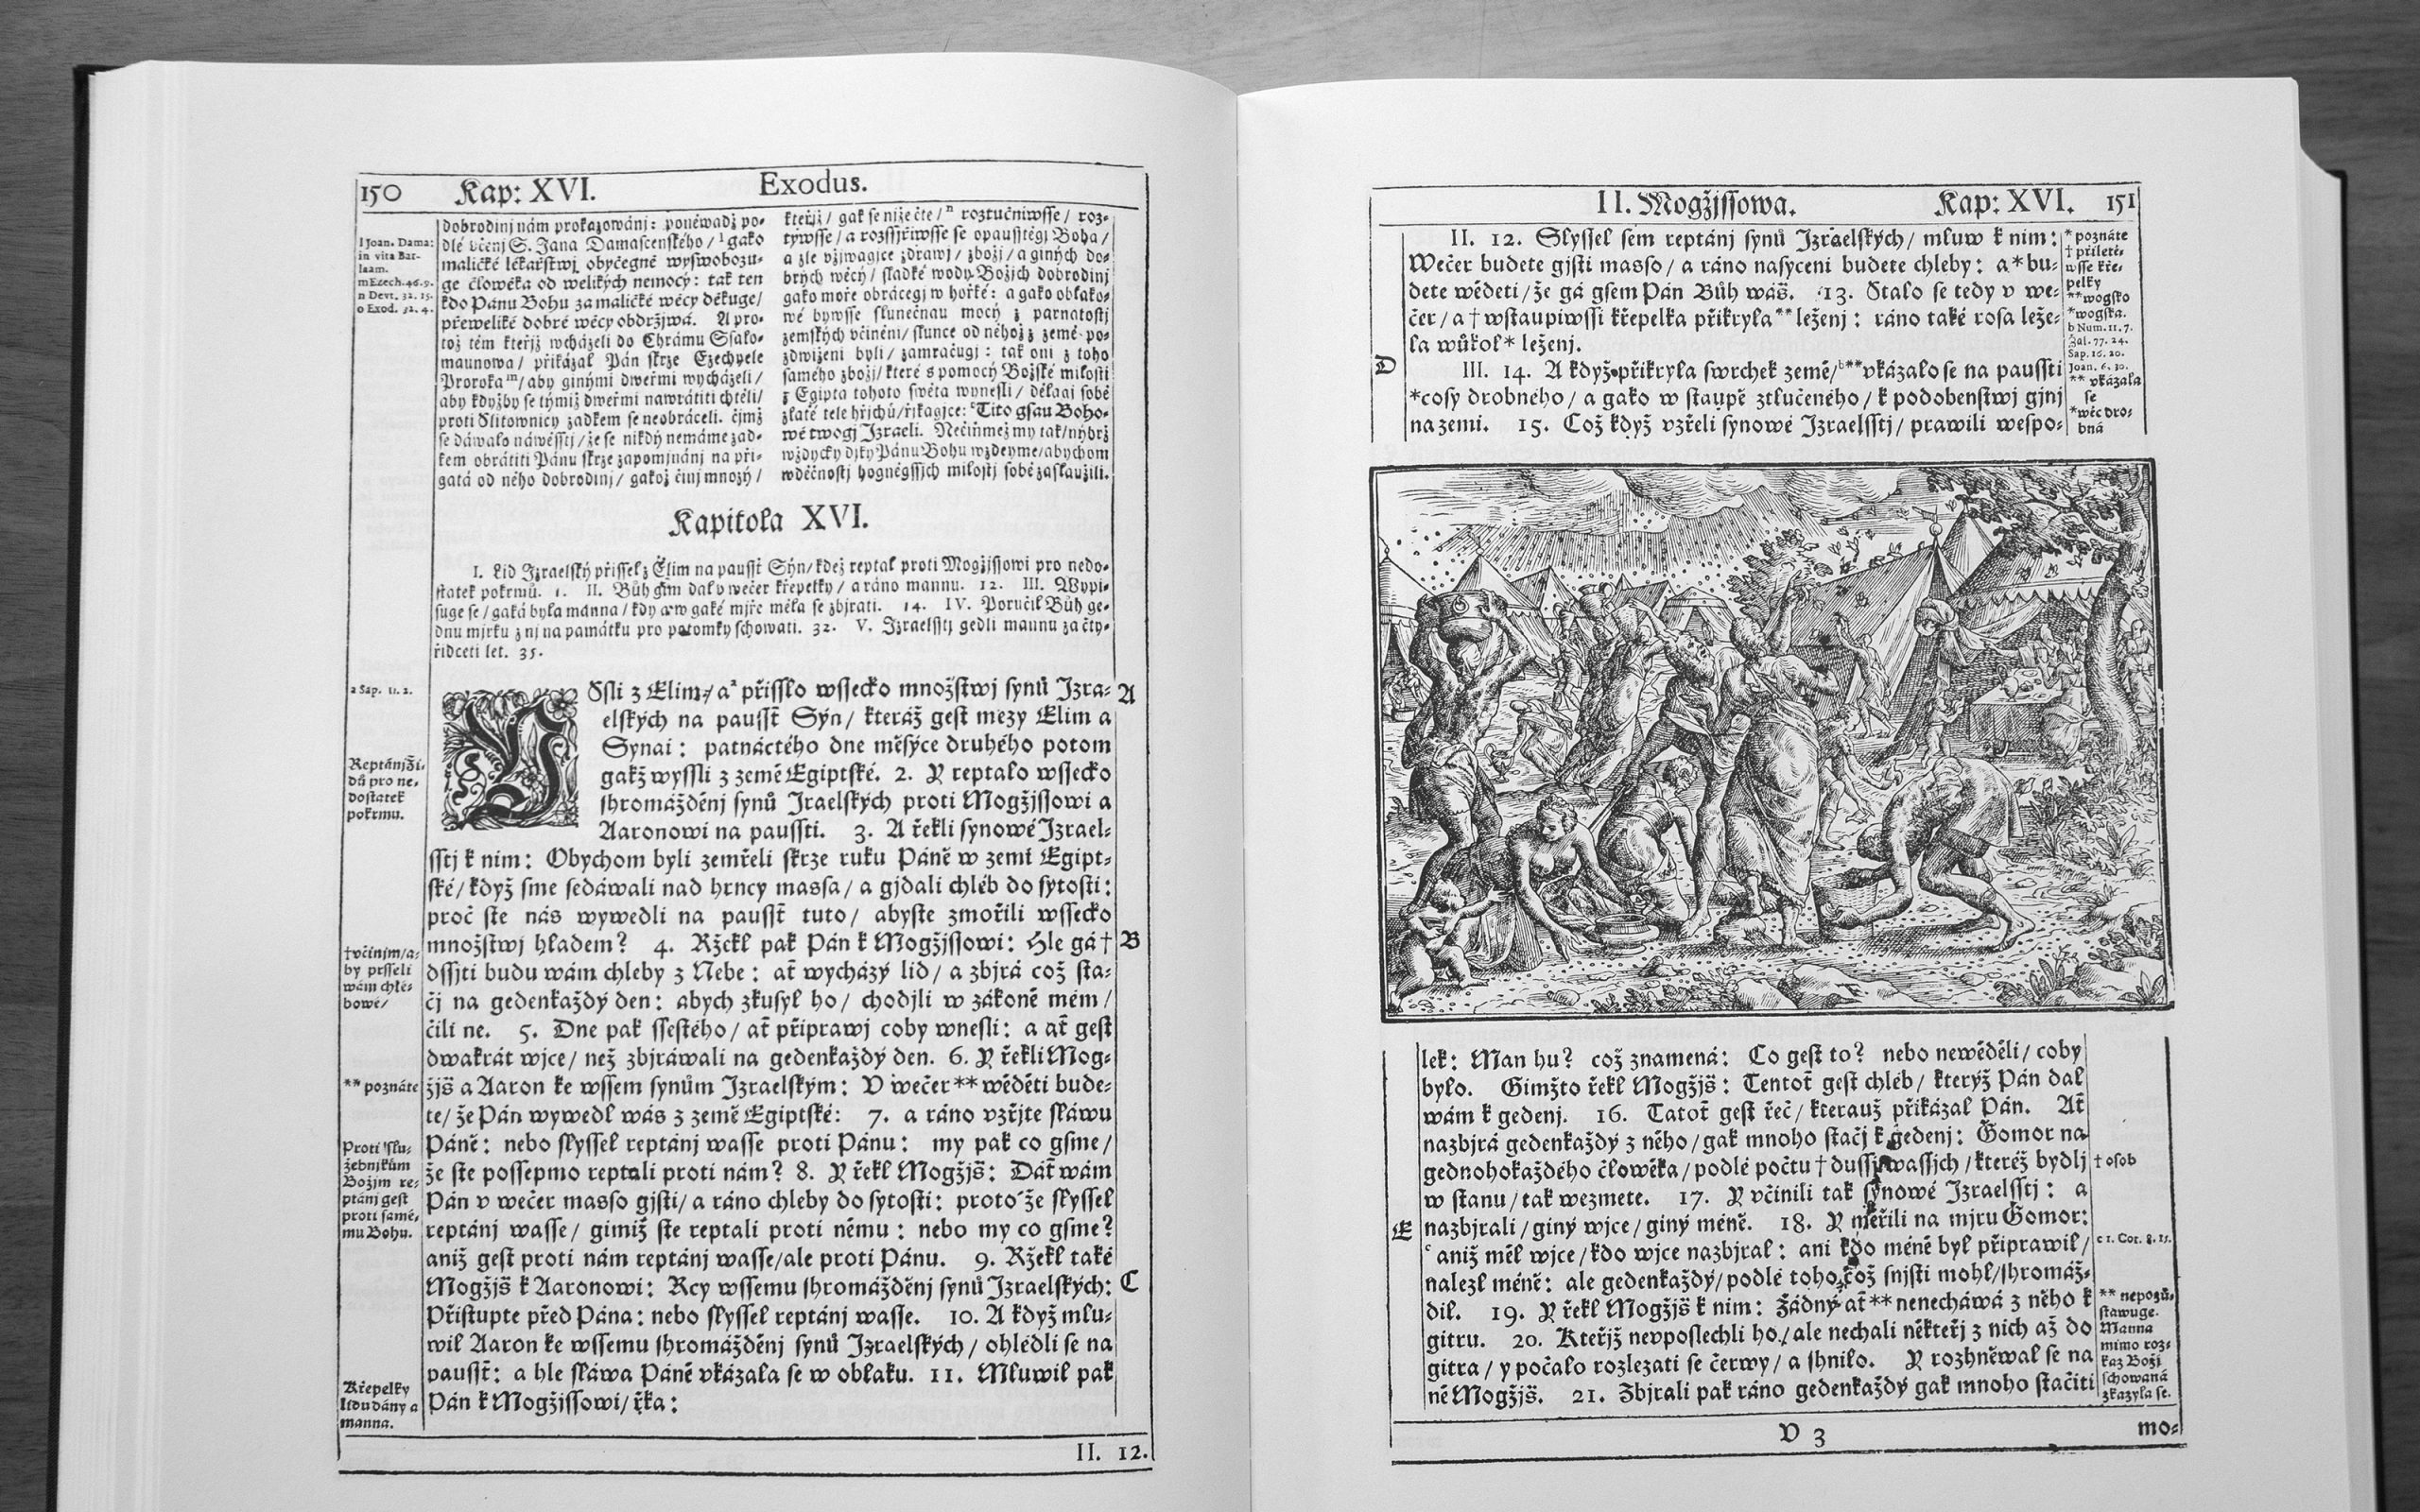 150 Kap: XVI. Exodus.
dobrodinj nám prokazowánj: poněwadž po-
dlé včenj S. Jana Damascenského / ˡ gako
maličké lékařstwj obyčegně wyswobozu-
ge člowěka od welikých nemocý: tak ten
kdo Pánu Bohu za maličké wěcy děkuge /
přeweliké dobré wěcy obdržjwá. A pro-
tož těm kteřjž wcházeli do Chrámu Ssalo-
maunowa / přikázal Pán skrze Ezechyele
Proroka ᵐ / aby ginými dweřmi wycházeli /
aby kdyžby se týmiž dweřmi nawrátiti chtěli /
proti Slitownicy zadkem se neobráceli. čjmž
se dáwalo náwěsstj / že se nikdý nemáme zad-
kem obrátiti Pánu skrze zapomjnánj na při-
gatá od něho dobrodinj / gakož činj mnozý /
kteřjž / gak se njže čte / ⁿ roztučniwsse / roz-
tywsse / a rozssjřiwsse se opausstěgj Boha /
a zle vžjwagjce zdrawj / zbožj / a giných do-
brých wěcý / sladké wody Božjch dobrodinj
gako moře obrácegj w hořké: a gako oblako-
wé bywsse slunečnau mocý z parnatostj
zemských včiněni / slunce od něhož z země po-
zdwiženi byli / zamračugj: tak oni z toho
samého zbožj / které s pomocý Božské milosti
z Egipta tohoto swěta wynesli / dělagj sobě
zlaté tele hřjchů / řjkagjce: ᵒ Tito gsau Boho-
wé twogj Izraeli. Nečiňmež my tak / nýbrž
wždycky djky Pánu Bohu wzdeyme / abychom
wděčnostj hogněgssjch milostj sobě zaslaužili.
l Joan. Dama:
in vita Bar-
laam.
m Ezech. 46. 9.
n Devt. 32. 15.
o Exod. 32. 4.
Kapitola XVI.
I. Lid Izraelský přissel z Elim na paussť Sýn / kdež reptal proti Mogžjssowi pro nedo-
statek pokrmů. 1. II. Bůh gim dal v wečer křepelky / a ráno mannu. 12. III. Wypi-
suge se / gaká byla manna / kdy a w gaké mjře měla se zbjrati. 14. IV. Poručil Bůh ge-
dnu mjrku z nj na památku pro potomky schowati. 32. V. Izraelsstj gedli mannu za čty-
řidceti let. 35.
a Sap. 11. 2.
Ssli z Elim / aᵃ přisslo wssecko množstwj synů Izra- A
elských na paussť Sýn / kteráž gest mezy Elim a
Synai: patnáctého dne měsýce druhého potom
gakž wyssli z země Egiptské. 2. Y reptalo wssecko
shromážděnj synů Iraelských proti Mogžjssowi a
Aaronowi na paussti. 3. A řekli synowé Izrael-
sstj k nim: Obychom byli zemřeli skrze ruku Páně w zemi Egipt-
ské / když sme sedáwali nad hrncy massa / a gjdali chléb do sytosti:
proč ste nás wywedli na paussť tuto / abyste zmořili wssecko
množstwj hladem? 4. Ržekl pak Pán k Mogžjssowi: Hle gá † B
dssjti budu wám chleby z Nebe: ať wycházý lid / a zbjrá což sta-
čj na gedenkaždý den: abych zkusyl ho / chodjli w zákoně mém /
čili ne. 5. Dne pak ssestého / ať připrawj coby wnesli: a ať gest
dwakrát wjce / než zbjráwali na gedenkaždý den. 6. Y řekli Mog-
žjš a Aaron ke wssem synům Izraelským: V wečer ** wěděti bude-
te / že Pán wywedl wás z země Egiptské: 7. a ráno vzřjte sláwu
Páně: nebo slyssel reptánj wasse proti Pánu: my pak co gsme /
že ste possepmo reptali proti nám? 8. Y řekl Mogžjš: Dáť wám
Pán v wečer masso gjsti / a ráno chleby do sytosti: proto že slyssel
reptánj wasse / gimiž ste reptali proti němu: nebo my co gsme?
aniž gest proti nám reptánj wasse / ale proti Pánu. 9. Ržekl také
Mogžjš k Aaronowi: Rcy wssemu shromážděnj synů Izraelských: C
Přistupte před Pána: nebo slyssel reptánj wasse. 10. A když mlu-
wil Aaron ke wssemu shromážděnj synů Izraelských / ohlédli se na
paussť: a hle sláwa Páně vkázala se w oblaku. 11. Mluwil pak
Pán k Mogžjssowi / řka:
Reptánj Ži-
dů pro ne-
dostatek
pokrmu.
† včinjm / a-
by prsseli
wám chle-
bowé /
** poznáte
Proti slu-
žebnjkům
Božjm re-
ptánj gest
proti samé-
mu Bohu.
Křepelky
lidu dány a
manna.
II. 12.
II. Mogžjssowa. Kap: XVI. 151
II. 12. Slyssel sem reptánj synů Izraelských / mluw k nim:
Wečer budete gjsti masso / a ráno nasyceni budete chleby: a * bu-
dete wěděti / že gá gsem Pán Bůh wáš. 13. Stalo se tedy v we-
čer / a † wstaupiwssi křepelka přikryla ** leženj: ráno také rosa leže-
la wůkol * leženj.
D III. 14. A když přikryla swrchek země / ᵇ ** vkázalo se na paussti
* cosy drobného / a gako w staupě ztlučeného / k podobenstwj gjnj
na zemi. 15. Což když vzřeli synowé Izraelsstj / prawili wespo-
* poznáte
† přiletě-
wsse kře-
pelky
** wogsko
* wogska.
b Num. 11. 7.
Zal. 77. 24.
Sap. 16. 20.
Joan. 6. 30.
** vkázala
se
* wěc dro-
bná
lek: Man hu? což znamená: Co gest to? nebo newěděli / coby
bylo. Gimžto řekl Mogžjš: Tentoť gest chléb / kterýž Pán dal
wám k gedenj. 16. Tatoť gest řeč / kterauž přikázal Pán. Ať
nazbjrá gedenkaždý z něho / gak mnoho stačj k gedenj: Gomor na
gednohokaždého člowěka / podlé počtu † dussj wassjch / kteréž bydlj
w stanu / tak wezmete. 17. Y včinili tak synowé Izraelsstj: a
E nazbjrali / giný wjce / giný méně. 18. Y měřili na mjru Gomor:
ᶜ aniž měl wjce / kdo wjce nazbjral: ani kdo méně byl připrawil /
nalezl méně: ale gedenkaždý / podlé toho což snjsti mohl / shromáž-
dil. 19. Y řekl Mogžjš k nim: Žádný ať ** nenecháwá z něho k
gitru. 20. Kteřjž nevposlechli ho / ale nechali někteřj z nich až do
gitra / y počalo rozlezati se čerwy / a shnilo. Y rozhněwal se na
ně Mogžjš. 21. Zbjrali pak ráno gedenkaždý gak mnoho stačiti
† osob
c 1. Cor. 8. 15.
** nepozů-
stawuge.
Manna
mimo roz-
kaz Božj
schowaná
zkazyla se.
V 3 mo-